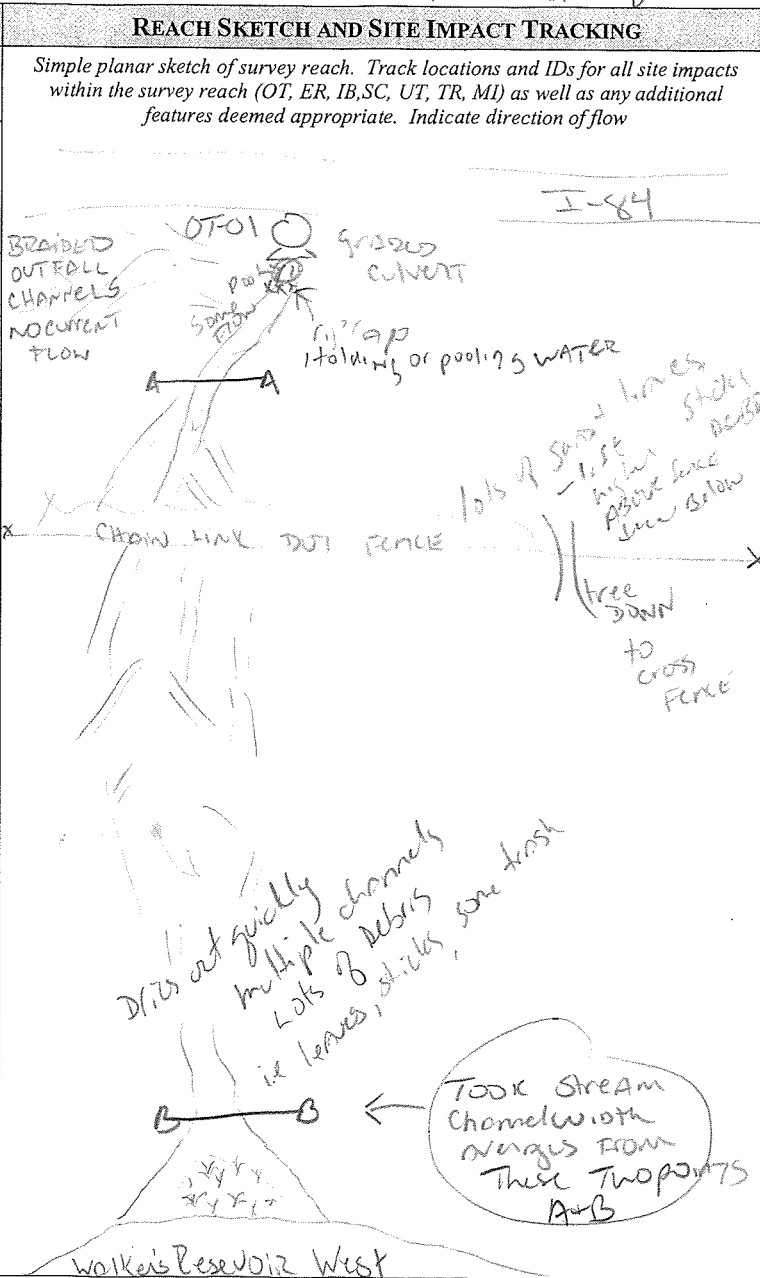 REACH SKETCH AND SITE IMPACT TRACKING
Simple planar sketch of survey reach. Track locations and IDs for all site impacts
within the survey reach (OT, ER, IB,SC, UT, TR, MI) as well as any additional
features deemed appropriate. Indicate direction of flow
I-84
OT-01
BRAIDED
OUTFALL
CHANNELS
NO CURRENT
FLOW
culvert
pool
some
flow
riprap
Holding or pooling WATER
A A
lots of sand leaves
sticks
higher
Above fence
Below
CHAIN LINK DOT FENCE
tree
DOWN
to
cross
FENCE
Dries out quickly
multiple channels
Lots of Debris
i.e leaves, sticks, some trash
B B
TOOK STREAM
Channel WIDTH
FROM
These Two points
A+B
Walker's Reservoir West